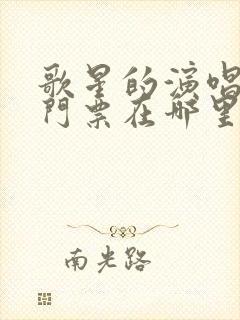 歌星的演唱
門票在哪里
南光路